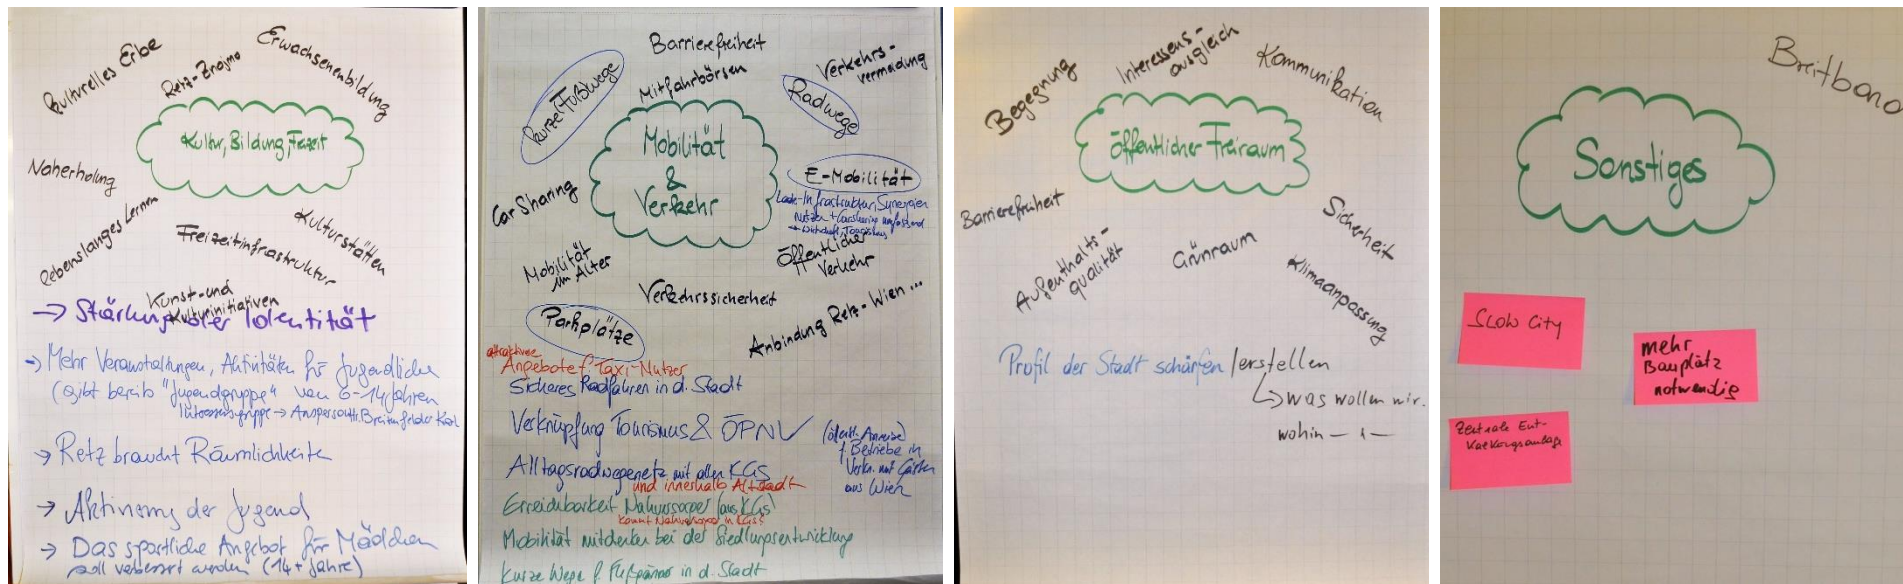 Kulturelles Erbe
Retz-Znojmo
Erwachsenenbildung
Kultur, Bildung, Freizeit
Naherholung
Lebenslanges Lernen
Freizeitinfrastruktur
Kulturstätten
Kunst- und
Kulturinitiativen
→ Stärkung der Identität
→ Mehr Veranstaltungen, Aktivitäten für Jugendliche
(Gibt bereits "Jugendgruppe" von 6-14 Jahren
Interessensgruppe → Ansprech. Breitenfelder Karl
→ Retz braucht Räumlichkeiten
→ Aktivierung der Jugend
→ Das sportliche Angebot für Mädchen
soll verbessert werden (14+ Jahre)
Barrierefreiheit
kurze Fußwege
Mitfahrbörsen
Verkehrs-
vermeidung
Radwege
Mobilität
&
Verkehr
E-Mobilität
Lade-Infrastruktur, Synergien
Nutzen + Carsharing umfassend
→ Wirtschaft, Tourismus
Car Sharing
Mobilität
im Alter
Öffentlicher
Verkehr
Verkehrssicherheit
Parkplätze
Anbindung Retz-Wien...
attraktive
Angebote f. Taxi-Nutzer
Sicheres Radfahren in d. Stadt
Verknüpfung Tourismus & ÖPNV
(öffentl. Anreise)
f. Betriebe in
Verb. mit Gästen
aus Wien
Alltagsradwegenetz mit allen KGs
und innerhalb Altstadt
Erreichbarkeit Nahversorger (aus KGs)
kommt Nahversorger in KGs?
Mobilität mitdenken bei der Siedlungsentwicklung
Kurze Wege f. Fußgänger in d. Stadt
Begegnung
Interessens-
ausgleich
Kommunikation
öffentlicher Freiraum
Barrierefreiheit
Aufenthalts-
qualität
Grünraum
Sicherheit
Klimaanpassung
Profil der Stadt schärfen/erstellen
↳ was wollen wir.
wohin — " —
Breitband
Sonstiges
Slow City
mehr
Bauplätz
notwendig
Zentrale Ent-
kalkungsanlage